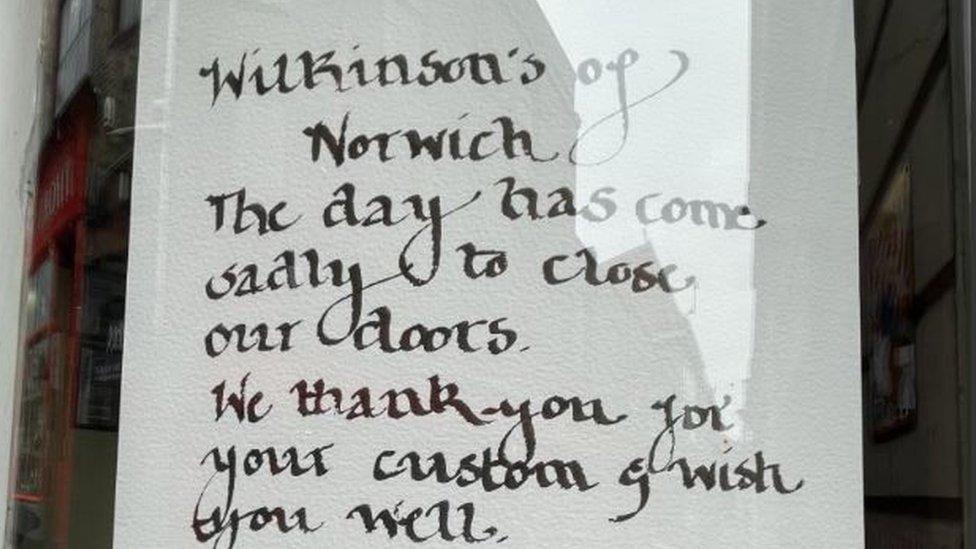 Wilkinson's of
Norwich
The day has come
sadly to close
our doors.
We thank you for
your custom & wish
you well.